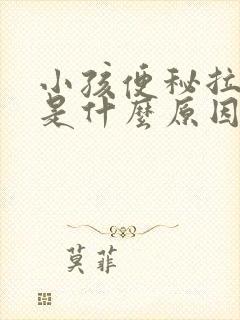 小孩便秘拉
是什麼原因
莫菲